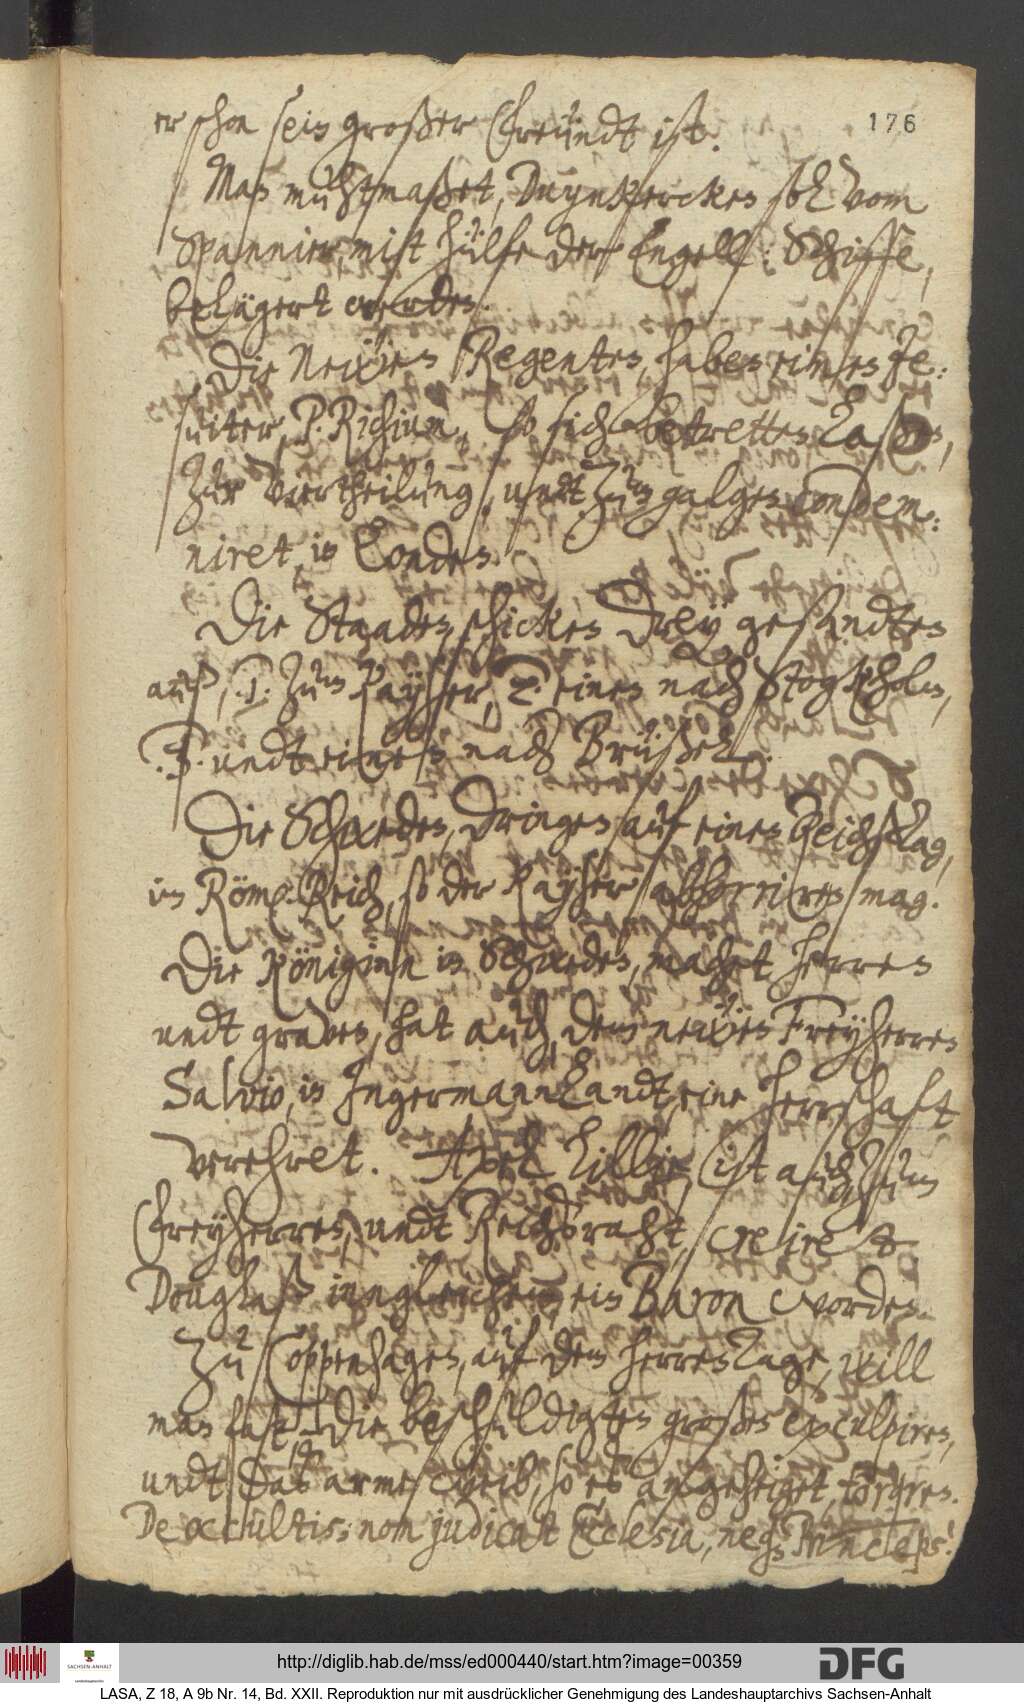 er schon sein großer Freundt ist.
176
Man muhtmaßet, Duynkercken soll vom
Spannier, mitt hülfe der Engell: Schiffe,
belägert werden.
Die Neẅen Regenten, haben einen Je:
suiter, P. Richium, so sich betretten laßen,
zur viertheilung, undt zum galgen condem:
niret, in Londen.
Die Staaden schicken Dreÿ gesandten
auß, .1. zum Kayser, 2. einen nach Stogkholm,
.3. undt einen nach Brüßel.
Die Schweden, dringen auf einen Reichstag,
im Röm: Reich, so der Kayser abhorriren mag.
Die Königinn in Schweden, machet herren
undt graven, hat auch, dem neẅen Freyherren
Salvio, in Ingermannlandt, eine herrschaft
verehret. Axel Lillie, ist auch zum
Freyherren, undt Reichsraht, creiret
Douglaß inngleichem, ein Baron worden.
Zu Coppenhagen, auf dem herrentage, will
man fast, die beschuldigten großen exculpiren,
undt das arme weib, so es angezeiget, torquiren.
De occultis: non judicat Ecclesia, neque Princeps!
http://diglib.hab.de/mss/ed000440/start.htm?image=00359
SACHSEN-ANHALT
DFG
LASA, Z 18, A 9b Nr. 14, Bd. XXII. Reproduktion nur mit ausdrücklicher Genehmigung des Landeshauptarchivs Sachsen-Anhalt